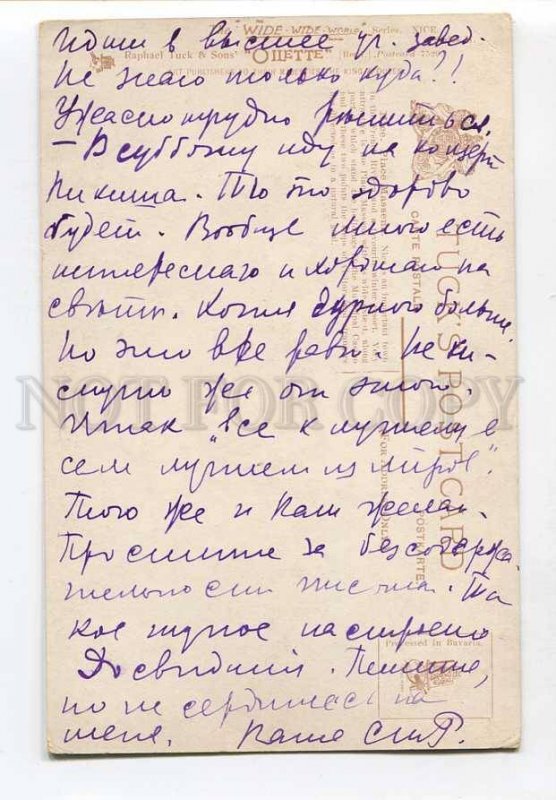 "WIDE-WIDE-WORLD" Series. NICE
Raphael Tuck & Sons' "OILETTE" [Regd.] Postcard
TUCK'S POST CARD
CARTE POSTALE
POSTKARTE
Processed in Bavaria.
NOT FOR COPY
в высшее уч. завед.
Не знаю только куда?!
Ужасно трудно решиться.
– В субботу иду на концерт
Никиша. То то здорово
будет. Вообще много есть
интереснаго и хорошаго на
свѣтѣ. Хотя дурного больше.
Но это все равно. Не ки-
снуть же от этого.
Итак „все к лучшему в
сем лучшем из міров".
Того же и Вам желаю.
Простите за безсодержа-
тельность письма. Та
кое тупое настроение
До свиданія. Пишите,
но не сердитесь на
меня. Ваша